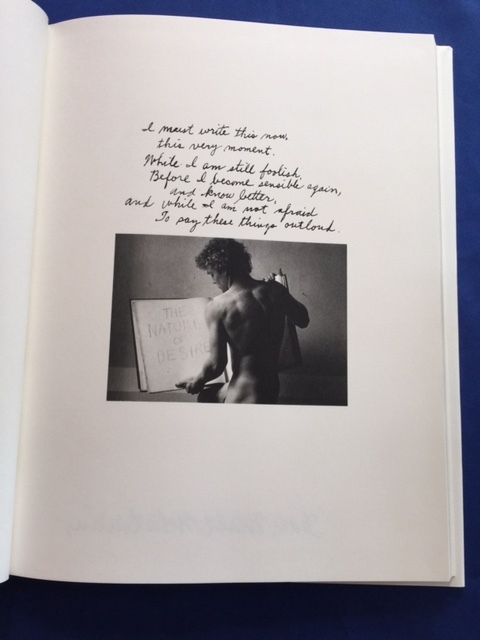 I must write this now,
this very moment.
While I am still foolish.
Before I become sensible again,
and know better,
and while I am not afraid
To say these things outloud.
THE
NATURE
OF
DESIRE